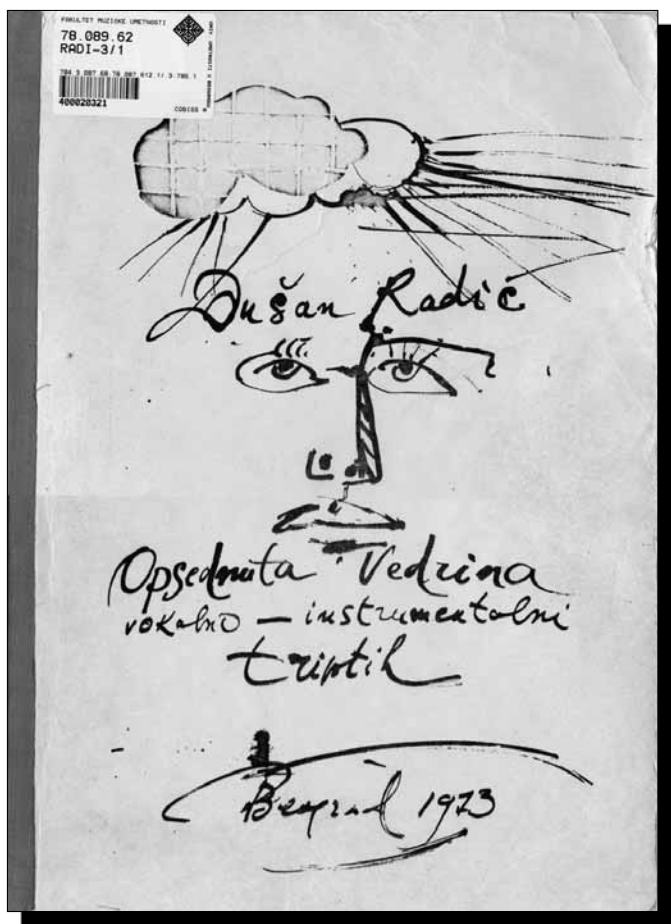 FAKULTET MUZIČKE UMETNOSTI
78.089.62
RADI-3/1
400020321
COBISS
Dušan Radić
Opsednuta Vedrina
vokalno – instrumentalni
triptih
Beograd 1973